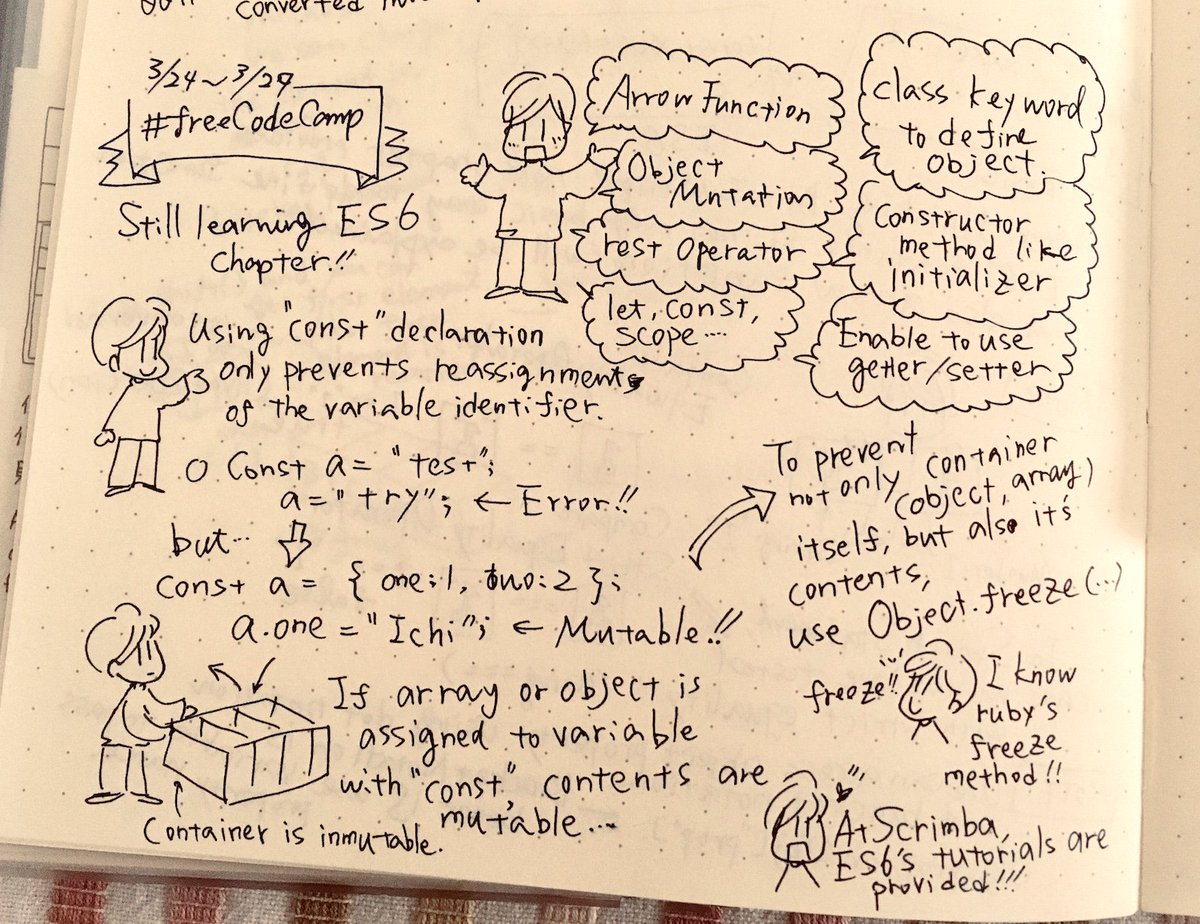 converted
3/24~3/29
#freeCodeCamp
Still learning ES6
chapter!!
Arrow Function
Object
Mutation
rest Operator
let, const,
scope...
class keyword
to define
object.
Constructor
method like
initializer
Enable to use
getter/setter
Using "const" declaration
only prevents reassignments
of the variable identifier.
o Const a = "test";
a = "try"; ← Error!!
but...
const a = { one:1, two:2 };
a.one = "Ichi"; ← Mutable!!
If array or object is
assigned to variable
with "const", contents are
mutable...
Container is inmutable.
To prevent
not only container
(object, array)
itself, but also it's
contents,
use Object.freeze(...)
freeze!!
I know
ruby's
freeze
method!!
At Scrimba,
ES6's tutorials are
provided!!!